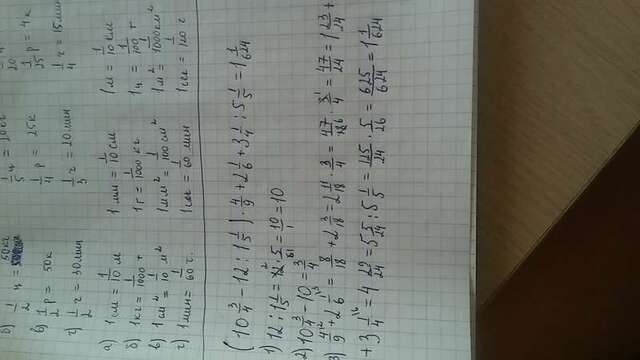 б) 1/2 ц = 50кг 1/5 ц = 20кг 1/20
в) 1/2 р = 50к 1/4 р = 25к 1/25 р = 4к
г) 1/2 ч = 30мин 1/3 ч = 20мин 1/4 ч = 15мин
а) 1см = 1/10 м 1мм = 1/10 см 1м = 1/10 км
б) 1кг = 1/1000 т 1г = 1/1000 кг 1ц = 1/100 т
в) 1см² = 1/10 м² 1мм² = 1/100 см² 1м² = 1/1000 км²
г) 1мин = 1/60 ч. 1сек = 1/60 мин 1сек = 1/120 ч
(10 3/4 - 12 : 1 1/5) · 4/9 + 2 1/6 + 3 1/4 : 5 1/5 = 1 1/624
1) 12 : 1 1/5 = 12 · 5/6 = 10/1 = 10
2) 10 3/4 - 10 = 3/4
3) 4/9 + 2 1/6 = 8/18 + 2 3/18 = 2 11/18 · 3/4 = 47/18 · 3/4 = 47/24 = 1 23/24 +
+ 3 1/4 = 4 29/24 = 5 5/24 : 5 1/5 = 125/24 · 5/26 = 625/624 = 1 1/624